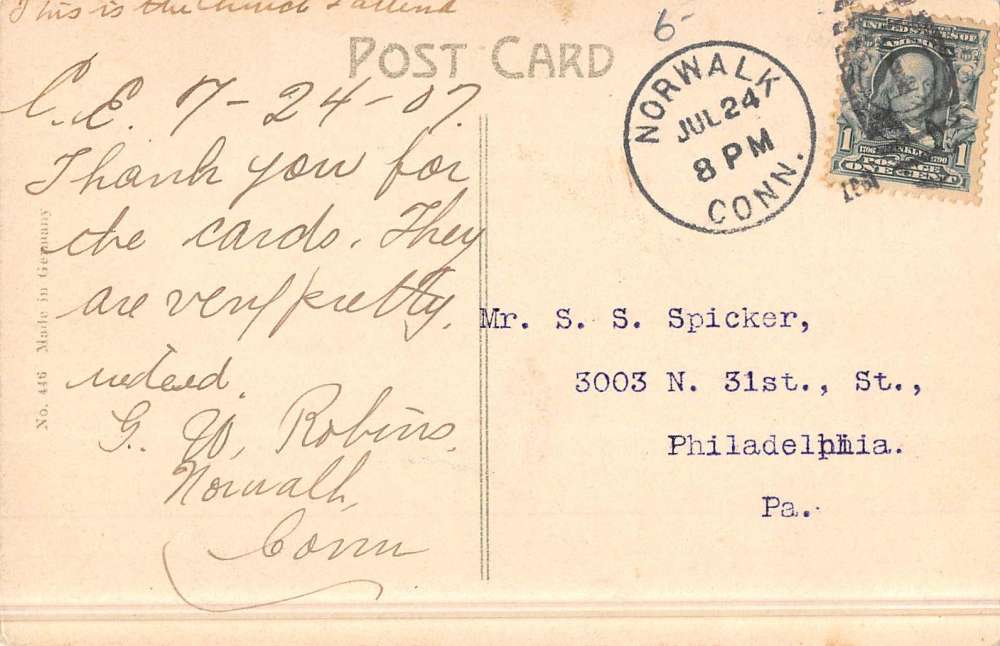 This is the Church I attend
POST CARD
6-
C.E. 7-24-07.
Thank you for
the cards. They
are very pretty,
indeed.
G. W. Robins,
Norwalk,
Conn
No. 446 Made in Germany
NORWALK
JUL 24
8 PM
CONN.
UNITED STATES OF
AMERICA
1706 FRANKLIN 1790
1 POSTAGE 1
ONE CENT
Mr. S. S. Spicker,
3003 N. 31st., St.,
Philadelphia.
Pa.